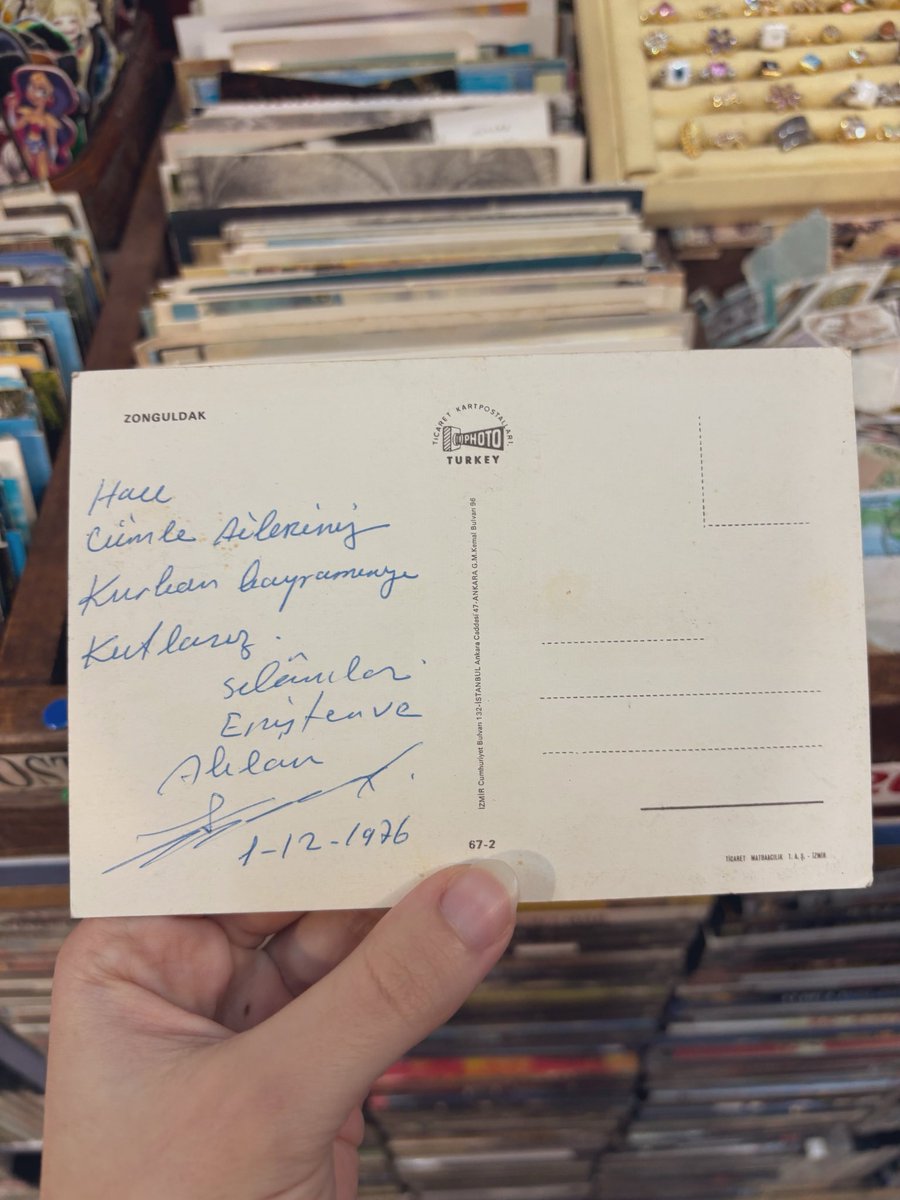 ZONGULDAK
TİCARET KARTPOSTALLARI
PHOTO
TURKEY
Cümle Aileniniz
Kurban bayramınızı
Kutlarız.
selâmlar
Enişten ve
Ablan
1-12-1976
İZMİR Cumhuriyet Bulvarı 132-İSTANBUL Ankara Caddesi 47-ANKARA G.M.Kemal Bulvarı 96
67-2
TİCARET MATBAACILIK T.A.Ş.-İZMİR